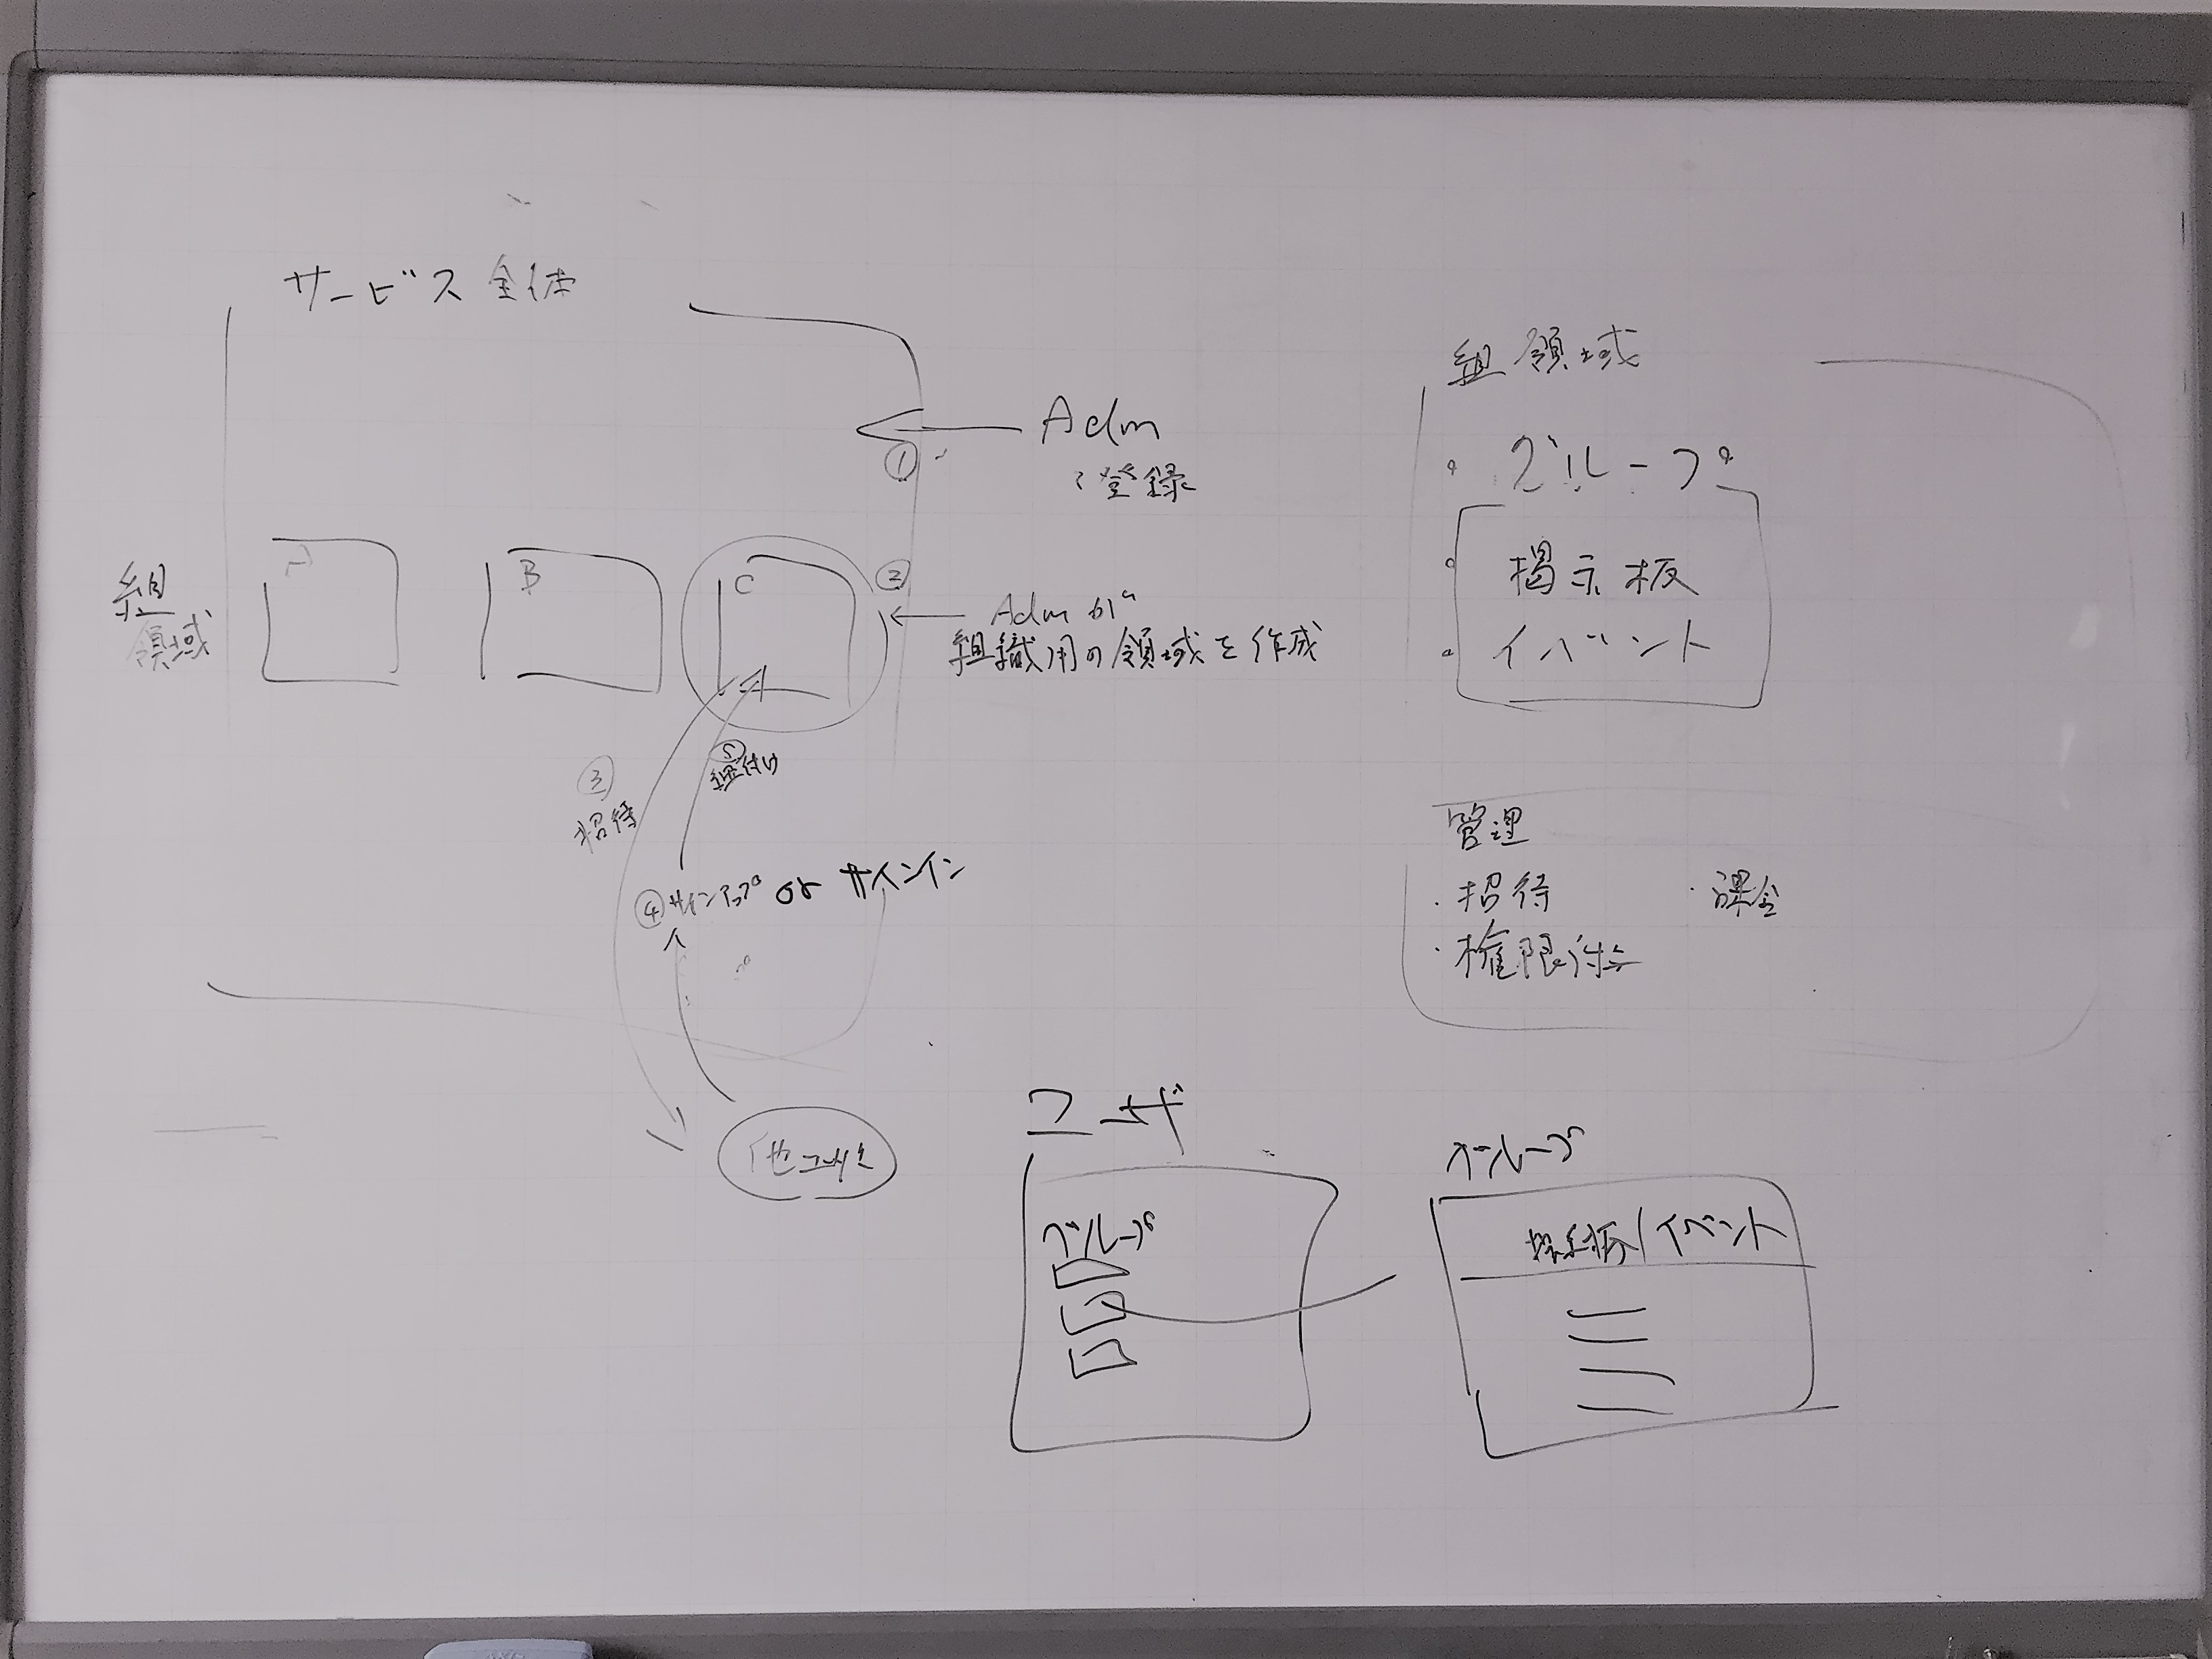 サービス全体
Adm
①
登録
組
領域
A
B
C
②
Admが
組織用の領域を作成
③
招待
⑤
紐付け
④サインアップ or サインイン
他ユーザ
組領域
・グループ
・掲示板
・イベント
管理
・招待
・課金
・権限付与
ユーザ
グループ
グループ
掲示板/イベント